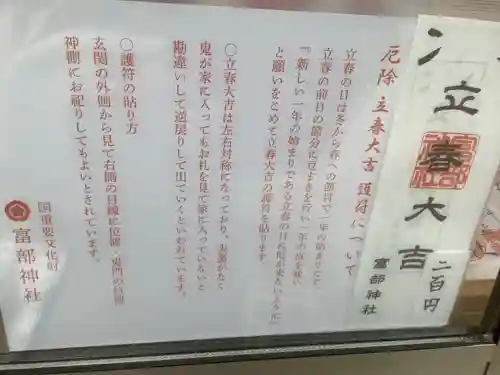 厄除 立春大吉 護符について
立春の日は冬から春への節分で一年の始まりとして、
立春の前日の節分に豆まきを行い一年の厄を祓い
『新しい一年の始まりである立春の日に
と願いをこめて立春大吉の護符を貼ります
〇立春大吉は左右対称になっており、
鬼が家に入ってもお札を見て家に入っていないと
勘違いして逆戻りして出ていくといわれています。
〇護符の貼り方
玄関の外側から見て右側の目線に位置
神棚にお祀りしてもよいとされています。
国重要文化財
富部神社
立春大吉
二百円
富部神社